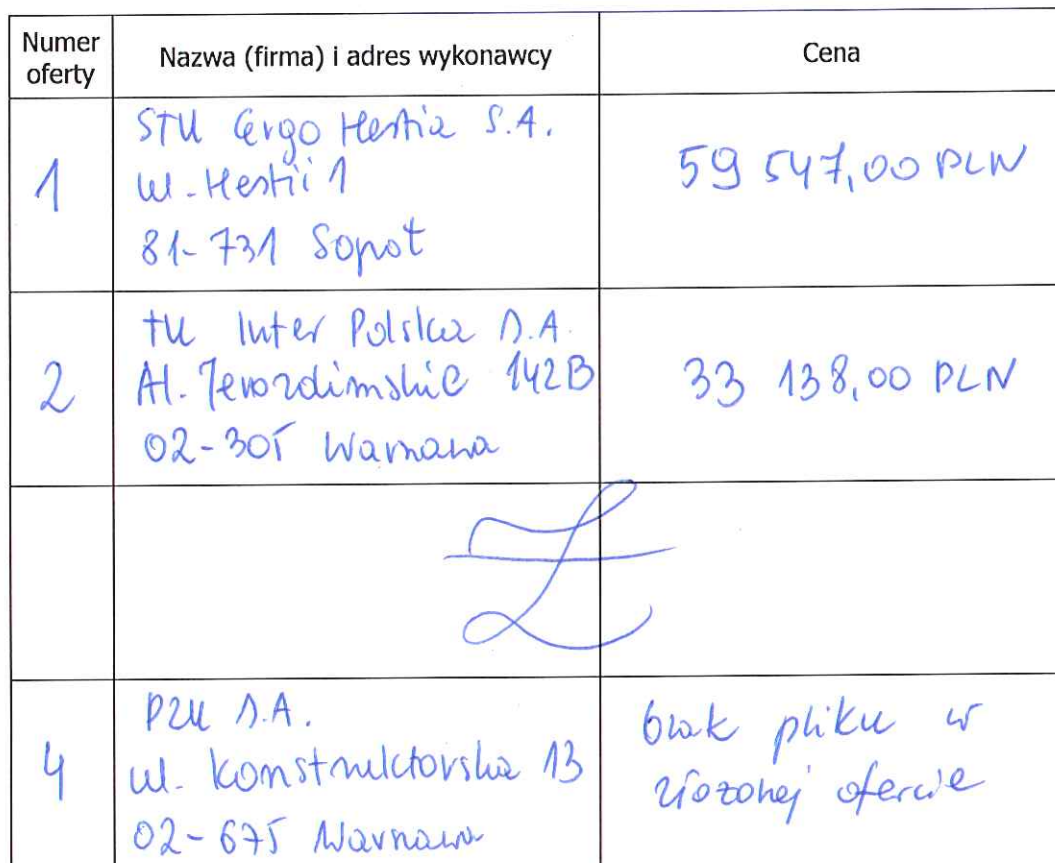 Numer oferty
Nazwa (firma) i adres wykonawcy
Cena
1
STU Ergo Hestia S.A.
ul. Hestii 1
81-731 Sopot
59 547,00 PLN
2
TU Inter Polska S.A.
Al. Jerozolimskie 142B
02-305 Warszawa
33 138,00 PLN
4
PZU S.A.
ul. Konstruktorska 13
02-675 Warszawa
brak pliku w
złożonej ofercie